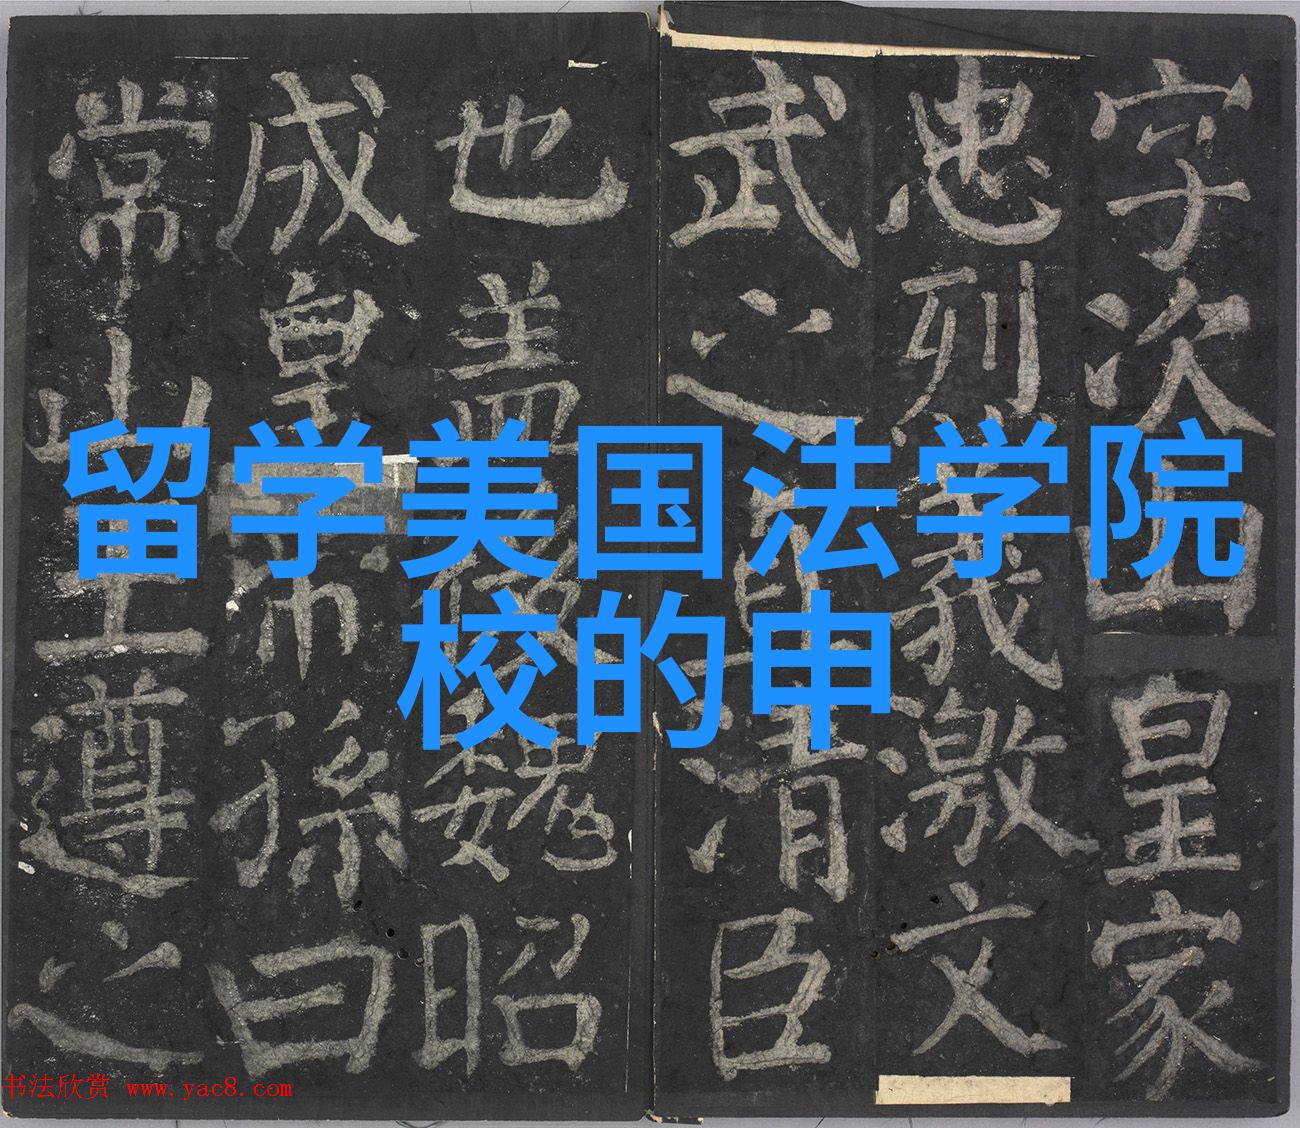 字次山皇家
忠烈義激文
武之直清臣
也盖後魏昭
成皇帝孫曰
常山王遵之
留学美国法学院
校的申
书法欣赏 www.yac8.com